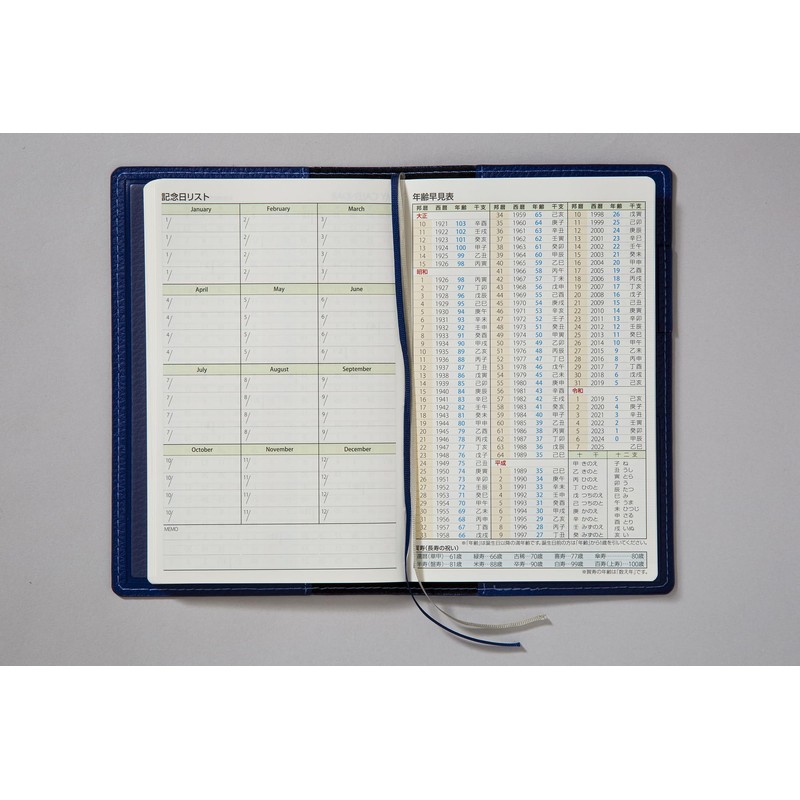 記念日リスト
January February March
1/ 2/ 3/
1/ 2/ 3/
1/ 2/ 3/
1/ 2/ 3/
April May June
4/ 5/ 6/
4/ 5/ 6/
4/ 5/ 6/
4/ 5/ 6/
July August September
7/ 8/ 9/
7/ 8/ 9/
7/ 8/ 9/
7/ 8/ 9/
October November December
10/ 11/ 12/
10/ 11/ 12/
10/ 11/ 12/
10/ 11/ 12/
MEMO
年齢早見表
邦暦 西暦 年齢 干支
大正
10 1921 103 辛酉
11 1922 102 壬戌
12 1923 101 癸亥
13 1924 100 甲子
14 1925 99 乙丑
15 1926 98 丙寅
昭和
1 1926 98 丙寅
2 1927 97 丁卯
3 1928 96 戊辰
4 1929 95 己巳
5 1930 94 庚午
6 1931 93 辛未
7 1932 92 壬申
8 1933 91 癸酉
9 1934 90 甲戌
10 1935 89 乙亥
11 1936 88 丙子
12 1937 87 丁丑
13 1938 86 戊寅
14 1939 85 己卯
15 1940 84 庚辰
16 1941 83 辛巳
17 1942 82 壬午
18 1943 81 癸未
19 1944 80 甲申
20 1945 79 乙酉
21 1946 78 丙戌
22 1947 77 丁亥
23 1948 76 戊子
24 1949 75 己丑
25 1950 74 庚寅
26 1951 73 辛卯
27 1952 72 壬辰
28 1953 71 癸巳
29 1954 70 甲午
30 1955 69 乙未
31 1956 68 丙申
32 1957 67 丁酉
33 1958 66 戊戌
邦暦 西暦 年齢 干支
34 1959 65 己亥
35 1960 64 庚子
36 1961 63 辛丑
37 1962 62 壬寅
38 1963 61 癸卯
39 1964 60 甲辰
40 1965 59 乙巳
41 1966 58 丙午
42 1967 57 丁未
43 1968 56 戊申
44 1969 55 己酉
45 1970 54 庚戌
46 1971 53 辛亥
47 1972 52 壬子
48 1973 51 癸丑
49 1974 50 甲寅
50 1975 49 乙卯
51 1976 48 丙辰
52 1977 47 丁巳
53 1978 46 戊午
54 1979 45 己未
55 1980 44 庚申
56 1981 43 辛酉
57 1982 42 壬戌
58 1983 41 癸亥
59 1984 40 甲子
60 1985 39 乙丑
61 1986 38 丙寅
62 1987 37 丁卯
63 1988 36 戊辰
64 1989 35 己巳
平成
1 1989 35 己巳
2 1990 34 庚午
3 1991 33 辛未
4 1992 32 壬申
5 1993 31 癸酉
6 1994 30 甲戌
7 1995 29 乙亥
8 1996 28 丙子
9 1997 27 丁丑
邦暦 西暦 年齢 干支
10 1998 26 戊寅
11 1999 25 己卯
12 2000 24 庚辰
13 2001 23 辛巳
14 2002 22 壬午
15 2003 21 癸未
16 2004 20 甲申
17 2005 19 乙酉
18 2006 18 丙戌
19 2007 17 丁亥
20 2008 16 戊子
21 2009 15 己丑
22 2010 14 庚寅
23 2011 13 辛卯
24 2012 12 壬辰
25 2013 11 癸巳
26 2014 10 甲午
27 2015 9 乙未
28 2016 8 丙申
29 2017 7 丁酉
30 2018 6 戊戌
31 2019 5 己亥
令和
1 2019 5 己亥
2 2020 4 庚子
3 2021 3 辛丑
4 2022 2 壬寅
5 2023 1 癸卯
6 2024 0 甲辰
7 2025 乙巳
十干
甲 きのえ
乙 きのと
丙 ひのえ
丁 ひのと
戊 つちのえ
己 つちのと
庚 かのえ
辛 かのと
壬 みずのえ
癸 みずのと
十二支
子 ね
丑 うし
寅 とら
卯 う
辰 たつ
巳 み
午 うま
未 ひつじ
申 さる
酉 とり
戌 いぬ
亥 い
※「年齢」は誕生日以降の満年齢です。誕生日前の方は「年齢」から1歳を引いてください。
賀寿(長寿の祝い)
還暦(華甲)…61歳 緑寿…66歳 古稀…70歳 喜寿…77歳 傘寿 80歳
半寿(盤寿)…81歳 米寿…88歳 卒寿…90歳 白寿…99歳 百寿(上寿)…100歳
※賀寿の年齢は「数え年」です。